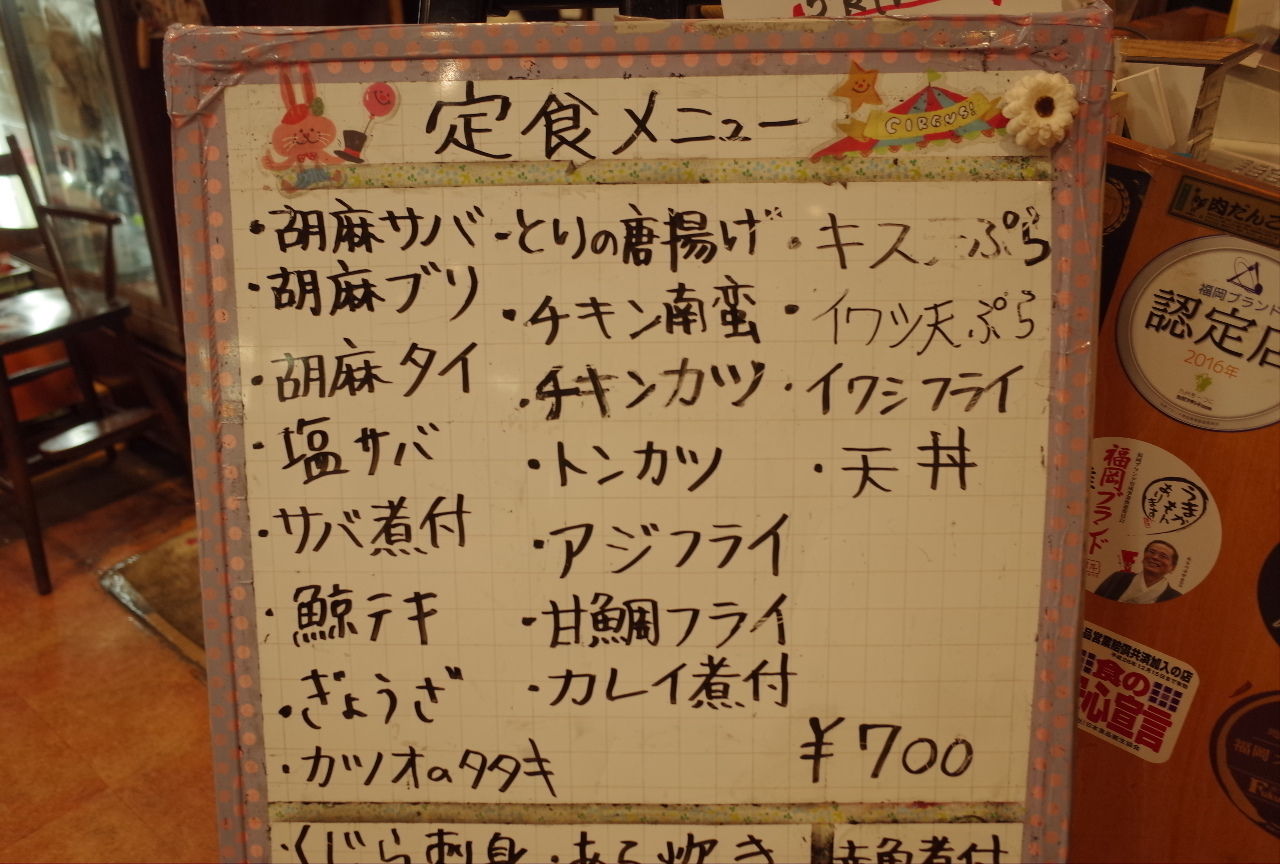 定食メニュー
CIRCUS!
・胡麻サバ
・胡麻ブリ
・胡麻タイ
・塩サバ
・サバ煮付
・鯨テキ
・ぎょうざ
・カツオのタタキ
・とりの唐揚げ
・チキン南蛮
・チキンカツ
・トンカツ
・アジフライ
・甘鯛フライ
・カレイ煮付
・キス ぷら
・イワシ天ぷら
・イワシフライ
・天丼
¥700
くじら刺身・あら炊き
赤魚煮付
肉だんご
福岡ブランド
認定店
2016年
福岡ブランド
うまか
もん
あります
品営業賠償共済加入の店
食の
心宣言
福岡